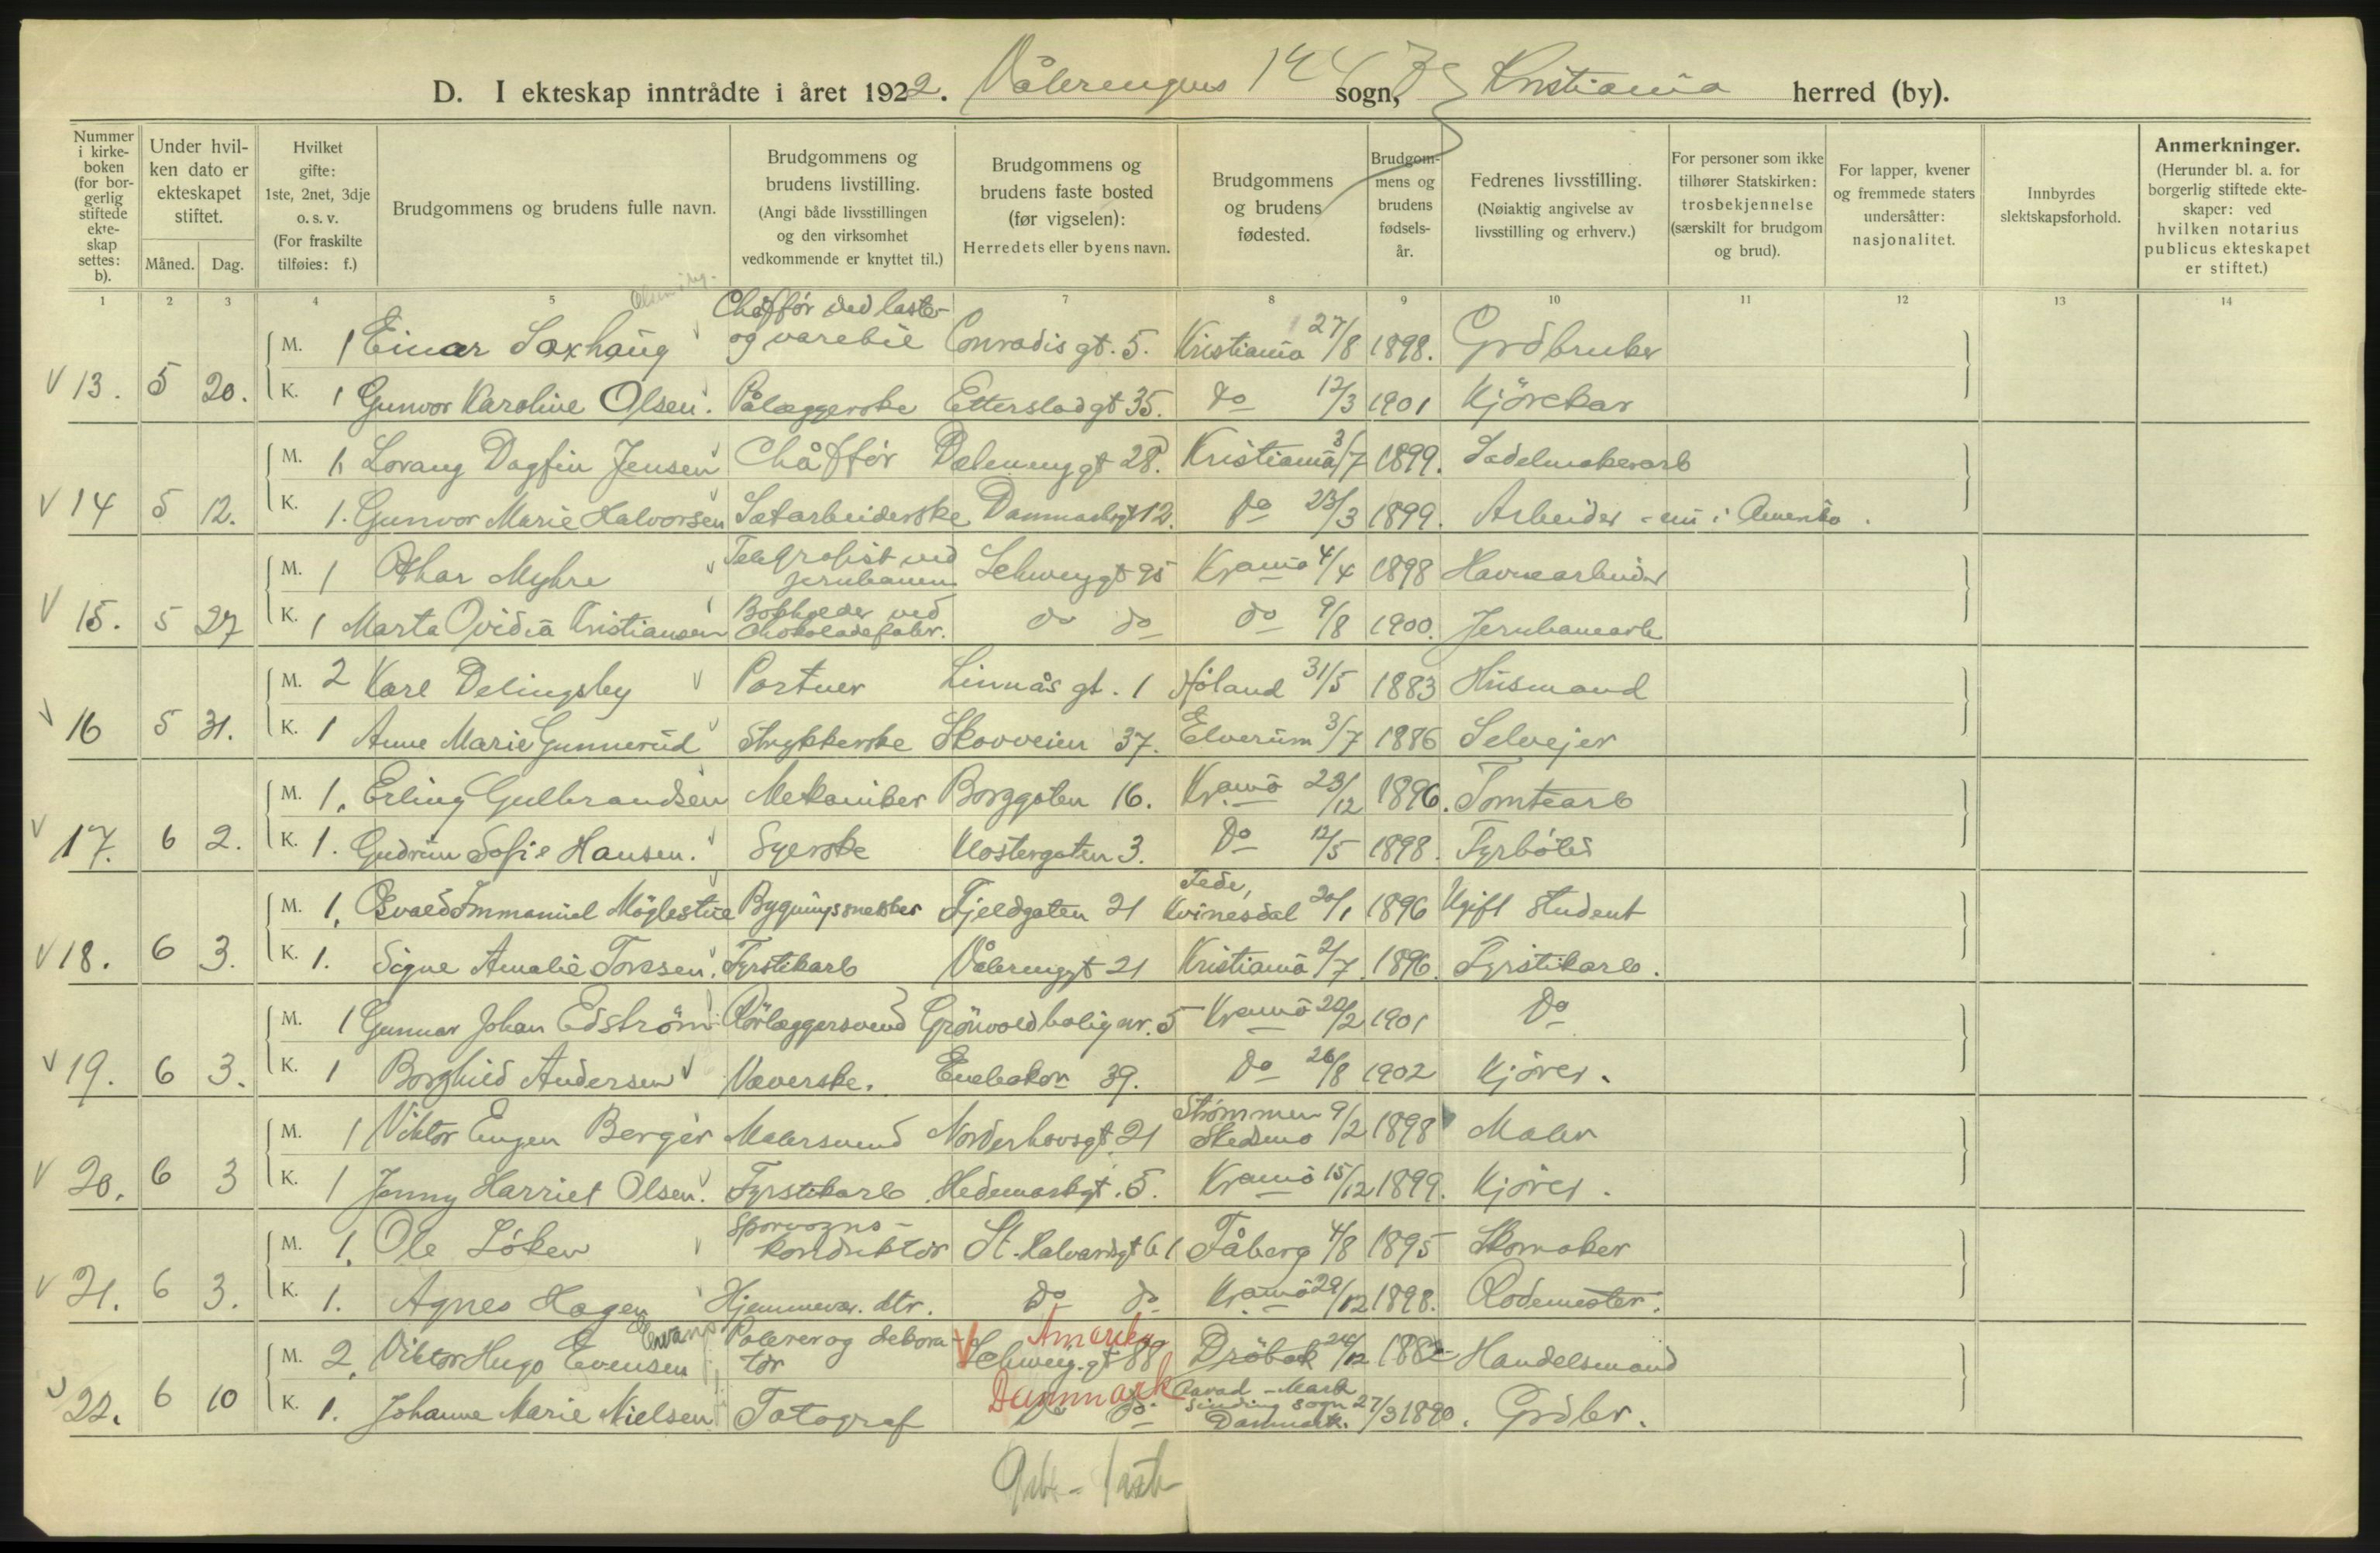 D. I ekteskap inntrådte i året 1922. Vålerengens sogn, Kristiania herred (by).
Nummer i kirkeboken (for borgerlig stiftede ekteskap settes: b).
Under hvilken dato er ekteskapet stiftet.
Måned. Dag.
Hvilket gifte: 1ste, 2net, 3dje o. s. v. (For fraskilte tilføies: f.)
Brudgommens og brudens fulle navn.
Brudgommens og brudens livstilling. (Angi både livsstillingen og den virksomhet vedkommende er knyttet til.)
Brudgommens og brudens faste bosted (før vigselen): Herredets eller byens navn.
Brudgommens og brudens fødested.
Brudgommens og brudens fødselsår.
Fedrenes livsstilling. (Nøiaktig angivelse av livsstilling og erhverv.)
For personer som ikke tilhører Statskirken: trosbekjennelse (særskilt for brudgom og brud).
For lapper, kvener og fremmede staters undersåtter: nasjonalitet.
Innbyrdes slektskapsforhold.
Anmerkninger. (Herunder bl. a. for borgerlig stiftede ekteskaper: ved hvilken notarius publicus ekteskapet er stiftet.)
1 2 3 4 5 6 7 8 9 10 11 12 13 14
M. 1 Einar Saxhaug Chåffør ved laste- og varebil Conradis gt. 5. Kristiania 27/8 1898. Grdbruker
13. 5 20. K. 1 Gunvor Karoline Olsen. Pålæggerske Etterstadgt 35. do 12/3 1901 Kjørekar
M. 1. Lorang Dagfin Jensen Chåffør Dalenenggt 28. Kristiania 3/7 1899. Sadelmakerarb
14 5 12. K. 1. Gunvor Marie Halvorsen Sætarbeiderske Danmarksgt 12. do 23/3 1899. Arbeider - nu i Amerika.
M. 1 Othar Myhre Telegrafist ved jernbanen Schweigt 95 Kr.ania 4/4 1898 Havnearbeider
15. 5 27 K. 1 Marta Ovidia Kristiansen Bokholder ved Chokoladefabr. do do do 9/8 1900. Jernbanearb
M. 2 Karl Delingsby Portner Linnås gt. 1 Høland 31/5 1883 Husmand
16 5 31. K. 1 Anne Marie Gunnerud Strykkerske Skovveien 37. Elverum 3/7 1886 Selvejer
M. 1. Erling Gulbrandsen Mekaniker Borggaten 16. Kr.ania 23/12 1896. Tomtearb
17. 6 2. K. 1. Gudrun Sofie Hansen. Syerske Klostergaten 3. Do 12/5 1898. Fyrbøter
M. 1. Osvald Immanuel Møglestue Bygningssnekker Fjeldgaten 21 Fede, Kvinesdal 20/1 1896 Ugift student
18. 6 3. K. 1. Signe Amalie Toresen. Fyrstikarb Vålerenggt 21 Kristiania 2/7 1896. Fyrstikarb.
M. 1 Gunnar Johan Edstrøm Rörlæggersvend Grönvoldbolig nr. 5 Kr.ania 20/2 1901 Do
19. 6 3. K. 1 Borghild Andersen Væverske. Enebakvn 39. Do 26/8 1902 Kjører.
M. 1 Viktor Eugen Berger Malersvend Norderhovsgt. 21 Strømmen Skedsmo 9/2 1898 Maler
20. 6 3 K. 1 Jenny Harriet Olsen. Fyrstikarb. Hedemarkgt. 5. Kr.ania 15/12 1899. Kjører.
M. 1. Ole Løken Sporvogns-konduktør St. Halvardsgt 61 Fåberg 4/8 1895 Skomaker
21. 6 3. K. 1. Agnes Hagen Hjemmevær. dtr. Do do Kr.ania 29/12 1898. Rodemester.
M. 2. Viktor Hugo Evensen Polerer og dekoratør Amerika Schweig.gt 88 Drøbak 24/12 1882 Handelsmand
22. 6 10 K. 1. Johanne Marie Nielsen Fotograf Danmark Do do Sinding sogn Danmark. 27/3 1890. Grdbr.